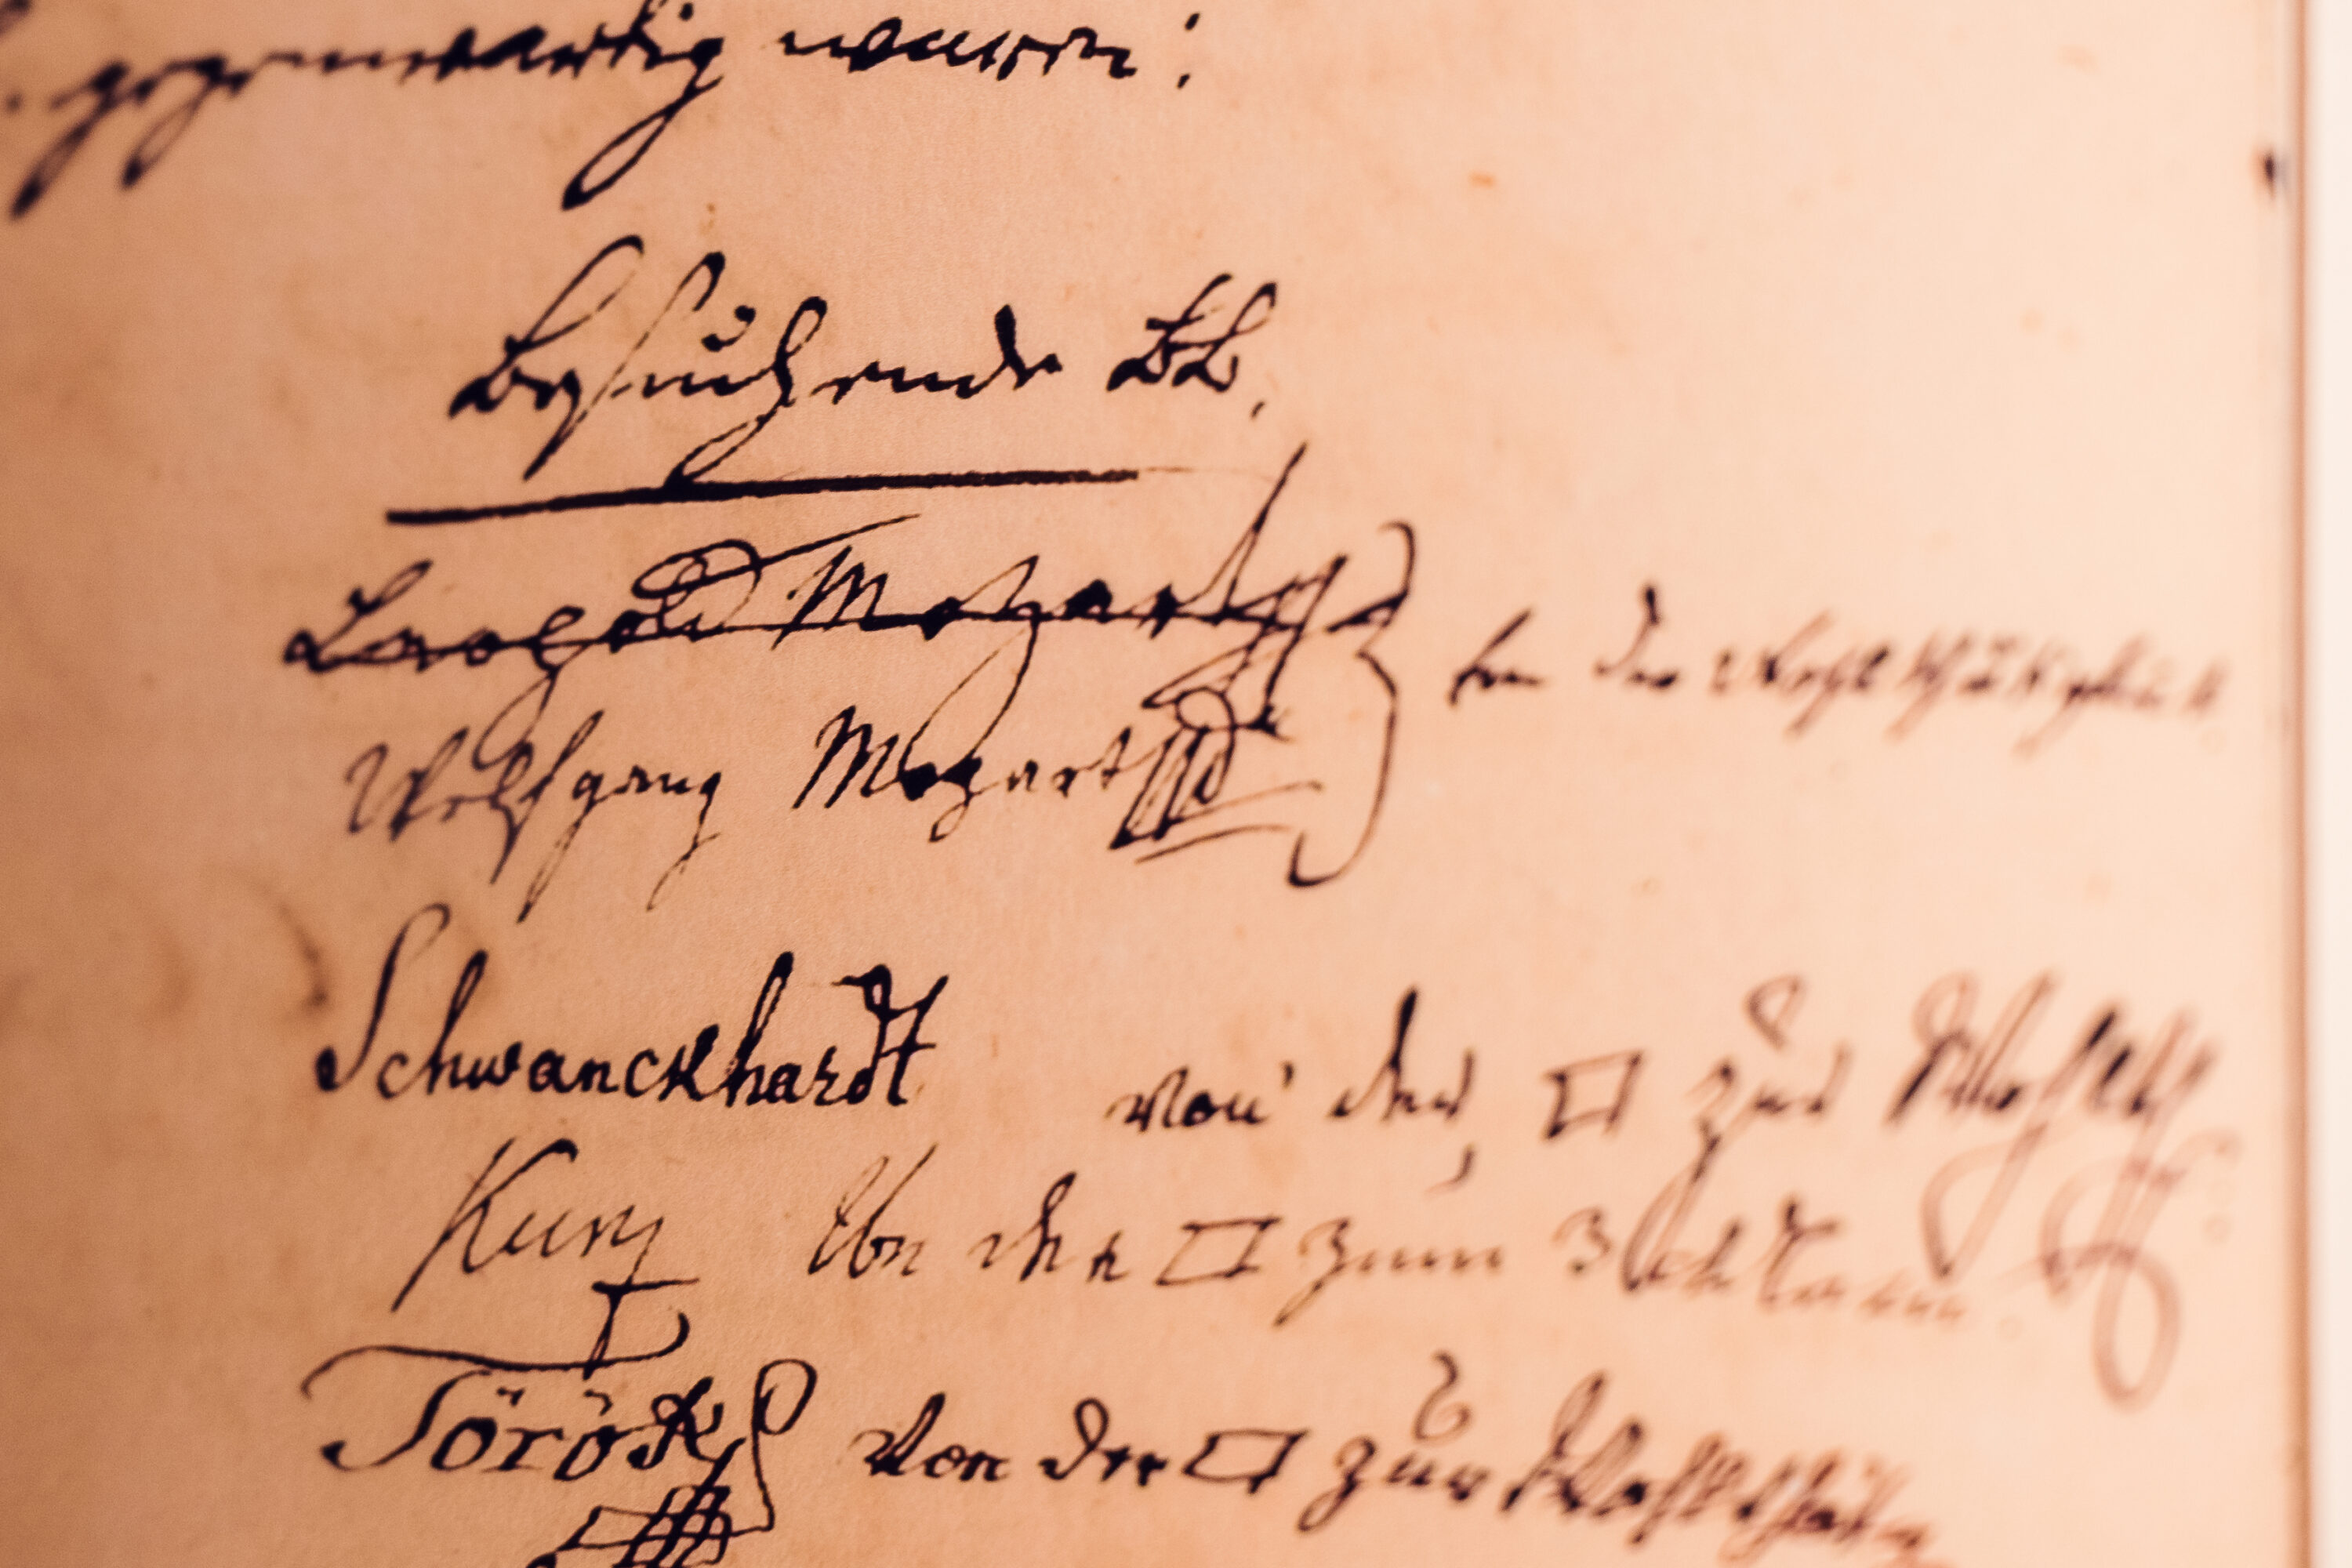 gegenwärtig waren:
Besuchende BB.
Leopold Mozart
Wolfgang Mozart } von der Wohlthätigkeit
Schwanckhardt von der □ zur Wohlth
Kurz von der □ zum 3
Török von der □ zur Wohlthätig